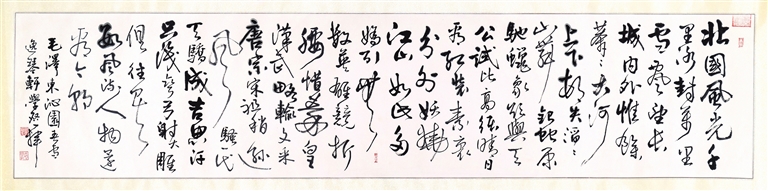 北國風光千
里冰封萬里
雪飄望長
城內外惟餘
莽莽大河
上下頓失滔滔
山舞銀蛇原
馳蠟象欲與天
公試比高須晴日
看紅裝素裹
分外妖嬈
江山如此多
嬌引無
數英雄競折
腰惜秦皇
漢武略輸文采
唐宗宋祖稍遜
風騷一代
天驕成吉思汗
只識彎弓射大雕
俱往矣
數風流人物還
看今朝
毛澤東沁園春雪
逸琴軒